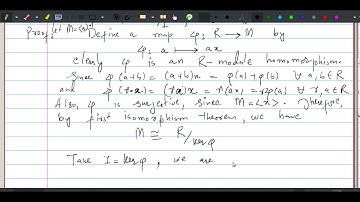 Proof: let M=<x>. Define a map φ: R → M by
φ: a ↦ ax
clearly φ is an R-module homomorphism.
Since φ(a+b) = (a+b)x = φ(a)+φ(b) ∀ a,b∈R
and φ(r.a) = (ra)x = r(ax) = rφ(a) ∀ r,a∈R
Also, φ is surjective, since M=<x>. Therefore,
by first isomorphism theorem, we have
M ≅ R/kerφ
Take I = kerφ, we are